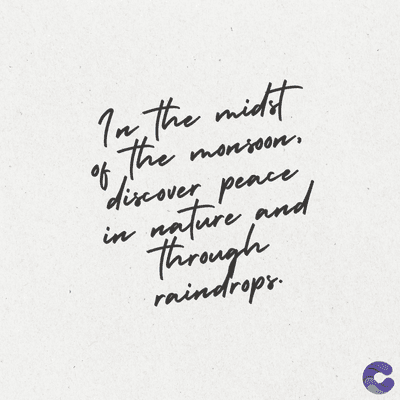 In the midst
of the monsoon,
discover peace
in nature and
through
raindrops.